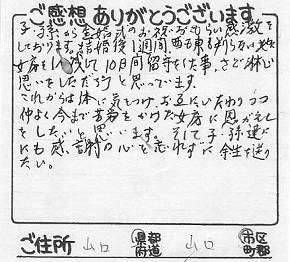 ご感想ありがとうございます
子、孫から金婚式のお祝いをもらい感激を
しております。結婚後1週間、西も東も判らない
女房を1人残して10日間留守を仕事、さぞ淋しい
思いをしただろうと思っています。
これからは体に気をつけ、お互いいたわりつつ
仲よく今まで苦労をかけた女房に恩がえし
をしたいと思います。そして子、孫達に
にも感謝の心を忘れずに余生を送り
たい。
ご住所 山口 県都府道 山口 市区町郡